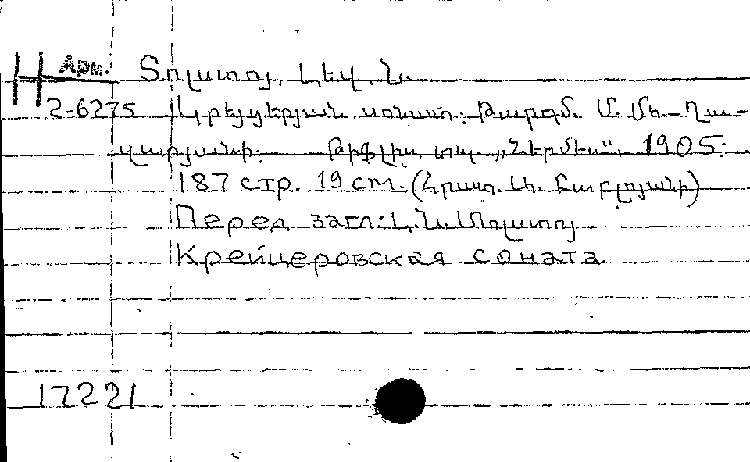 Арм. Տոլստոյ, Լեվ Ն.
2-6275 Կրեյցերյան սոնատ: Թարգմ. Մ. Մե. Ղա-
զարյանի. Թիֆլիս, տպ. „Հերմես“, 1905.
187 стр. 19 cm. (Հրատ.
Перед загл: Լ. Ն. Տոլստոյ
Крейцеровская соната
17221